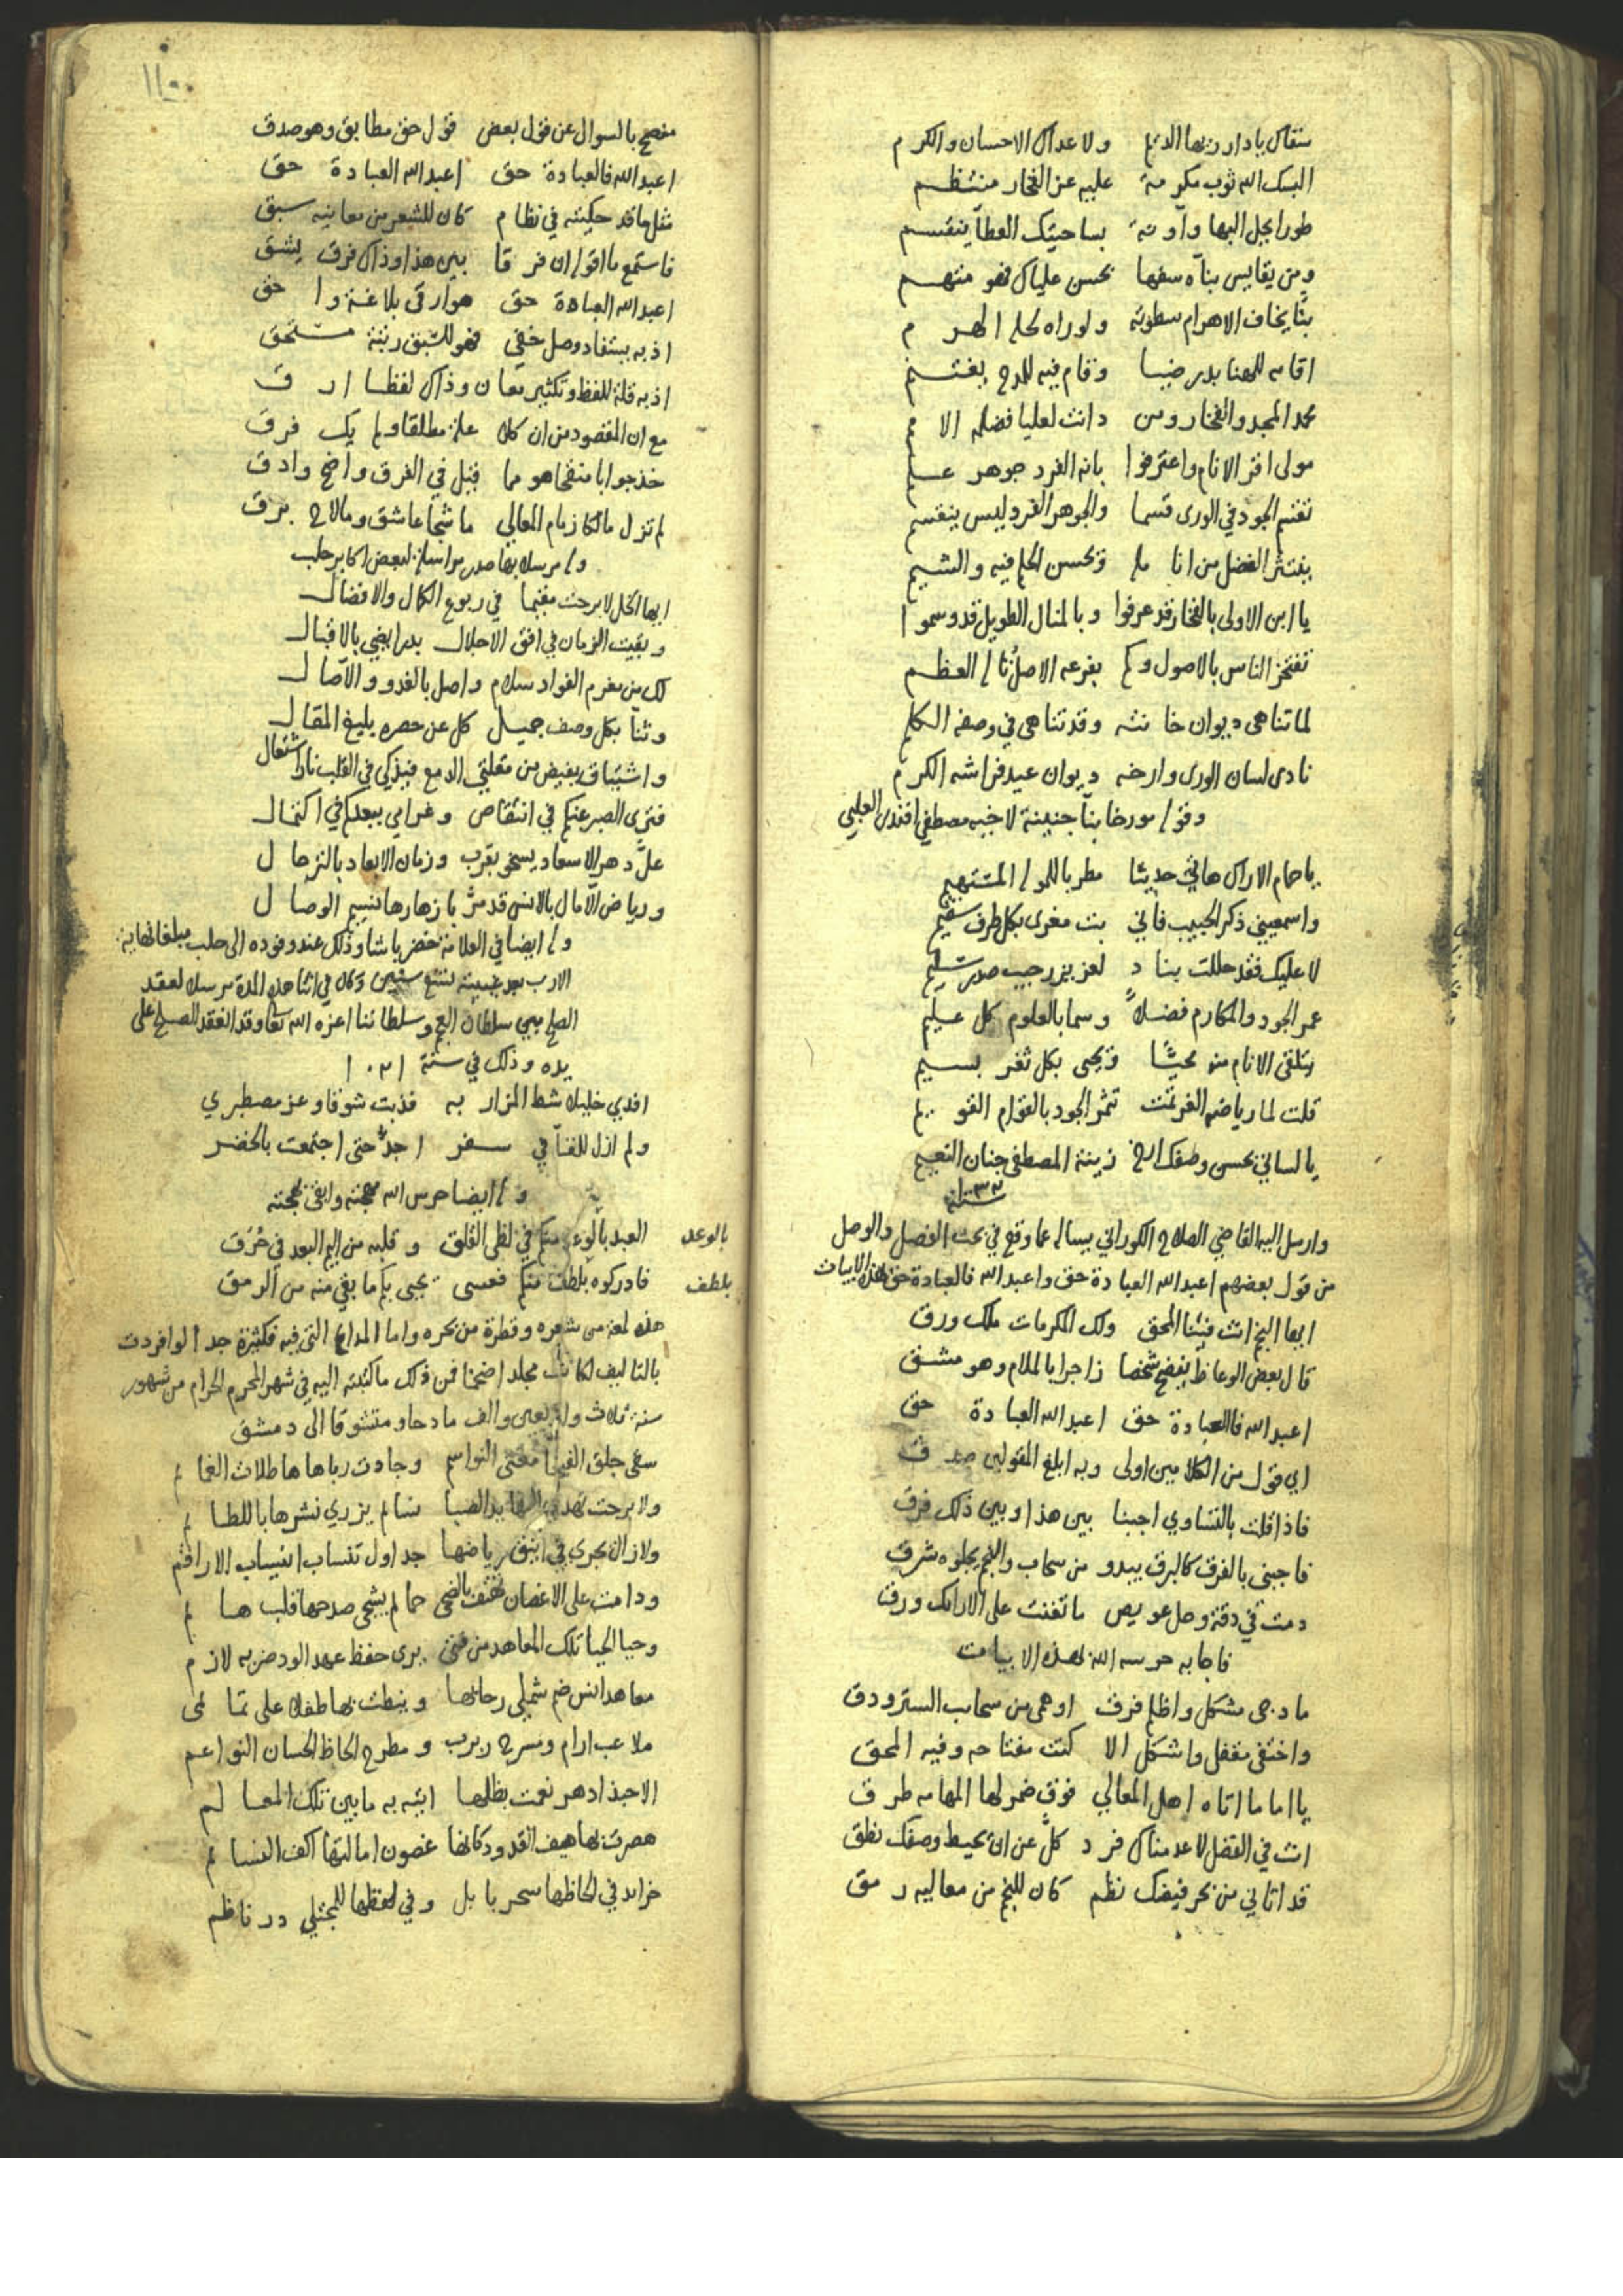 سقاك يادار ربها الديم ولا عداك الاحسان والكرم
البسك الله ثوب مكرمة عليه عز الفخار منتظم
طورا يجل البها وآونة بساحتيك العطآ ينقسم
ومن يقايس بنآه سفها بحسن علياك فهو متهم
بنا يخاف الاهرام سطوته ولو راه لحله الهرم
اقامه للهنا بدر ضيا وقام فيه للمدح يغتنم
محمد المجد والفخار ومن دانت لعليا فضله الامم
مولى اقر الانام واعترفوا بانه الفرد جوهر علم
تقسم الجود في الورى قسما والجوهر الفرد ليس ينقسم
ينتثر الفضل من انامله ويحسن الحلم فيه والشيم
يا ابن الاولى بالفخار قد عرفوا وبالمنال الطويل قد وسموا
تفتخر الناس بالاصول وكم بفرعه الاصل تاه العظم
لما تناهى ديوان خانته وقد تناهى في وصفه الكلم
نادى لسان الورى وارخه ديوان عيد فراشه الكرم
وقوله مورخا بنآ جنينة لاخيه مصطفى افندي العلبي
ياحمام الاراك هاتي حديثا مطربا للموله المستهيم
واسمعيني ذكر الحبيب فاني بت مغرى بكل طرف سقيم
لا عليك فقد حللت بناد لعزيز رحيب صدر سليم
عمر الجود والمكارم فضلاً وسما بالعلوم كل عليم
يتلقى الانام منه محيّا ويحيى بكل ثغر بسيم
قلت لما رياضه الغر تمت تثمر الجود بالقوام القويم
يا لساني بحسن وصفك ارخ زينة المصطفى جنان النعيم
سنة ١٠٣٢
وارسل اليه القاضي الصلاح الكوراني يساله عما وقع في بحث الفصل والوصل
من قول بعضهم اعبد الله العبادة حق واعبد الله فالعبادة حق بهذه الابيات
ايها النجم انت فينا المحق ولك المكرمات ملك ورق
قال بعض الوعاظ ينصح شخصا زاجرا بالملام وهو مشق
اعبد الله فالعبادة حق اعبد الله العبادة حق
اي قول من الكلامين اولى وبه ابلغ المقولين صدق
فاذا قلت بالتساوي اجبنا بين هذا وبين ذلك فرق
فاجبني بالفرق كالبرق يبدو من سحاب والنجم يجلوه شرق
دمت في دقة وحل عويص ما تغنت على الارائك ورق
فاجابه حرسه الله بهذه الابيات
ما دجى مشكل واظلم فرق او همى من سحاب السترودق
واختفى مقفل واشكل الا كنت مفتاحه وفيه المحق
يا اماما اتاه اهل المعالي فوق ضمر لها المهامه طرق
انت في الفضل لا عدمناك فرد كلّ عن ان يحيط وصفك نطق
قد اتاني من بحر فيضك نظم كان للنجم من معاليه رمق
مفصح بالسوال عن قول بعض قول حق مطابق وهو صدق
اعبد الله فالعبادة حق اعبد الله العبادة حق
مثل ما قد حكيته في نظام كان للشعر من معانيه سبق
فاستمع ما اقوله ان فرقا بين هذا وذاك فرق يشق
اعبد الله العبادة حق هو ارقى بلاغة واحق
اذ به يستفاد وصل خفي فهو للسبق رتبة مستحق
اذ به قلة للفظ وتكثير معان وذاك لفظا ارق
مع ان المقصود من ان كلا علة مطلقا ولم يك فرق
خذ جوابا منقحا هو مما قيل في الفرق واضح وادق
لم تزل مالكا زمام المعالي ما شجا عاشق وما لاح برق
وله مرسلا بها صدر مراسلة لبعض اكابر حلب
ايها الخل لا برحت مقيما في ربوع الكمال والافضال
وبقيت الزمان في افق الاجلال بدرا يضي بالاقبال
لك من مغرم الفواد سلام واصل بالغدو والآصال
وثنا بكل وصف جميل كل عن حصره بليغ المقال
واشتياق يفيض من مقلتي الدمع فيذكي في القلب نار اشتعال
فترى الصبر عنكم في انتقاص وغرامي ببعدكم في اكتمال
علّ دهر الاسعاد يسخى بقرب وزمان الابعاد بالترحال
ورياض الآمال بالانس قد مرّ بازهارها نسيم الوصال
وله ايضا في العلامة خضر پاشا وذلك عند وفوده الى حلب مبلغا نهاية
الارب بعد غيبته لتسع سنين وكان في اثنا هذه المدة مرسلا لعقد
الصلح بين سلطان العجم وسلطاننا اعزه الله تعالى وقد انعقد الصلح على
يده وذلك في سنة ١٠٢١
افدي خليلا شط المزار به فذبت شوقا وعز مصطبري
ولم ازل للقآ في سفر اجدّ حتى اجتمعت بالخضر
وله ايضا حرس الله مهجته وابقى بهجته
العبد بالوعد منكم في لظى القلق وقلبه من اليم البعد في حُرَق
بالوعد
فادركوه بلطف منكم فعسى يحيى بكم ما بقي منه من الرمق
بلطف
هذه لمعة من شعره وقطرة من بحره واما المدايح التي فيه فكثيرة جدا لو افردت
بالتاليف لكانت مجلدا ضخما فمن ذلك ما كتبته اليه في شهر المحرم الحرام من شهور
سنة ثلاث واربعين والف مادحا ومتشوقا الى دمشق
سقى جلق الفيحا معتل النواسم وجادت رباها هاطلات الغمايم
ولا برحت تهدي اليها يد الصبا نسايم يزري نشرها باللطايم
ولا زال يجري في انيق رياضها جداول تنساب انسياب الاراقم
ودامت على الاغصان تهتف بالضحى حمايم يشجي صدحها قلب هايم
وحيا الحيا تلك المعاهد من فتى يرى حفظ عهد الود ضربه لازم
معاهد انس ضم شملي رحابها ونيطت بها طفلا علي تمايمي
ملاعب ارام ومسرح ربرب ومطرح الحاظ الحسان النواعم
الا حبذا دهر نعمت بظلها اتيه به ما بين تلك المعالم
هصرت بها هيف القدود كانها غصون امالتها اكف النسايم
خرايد في الحاظها سحر بابل وفي لفظها للمجتلي در ناظم